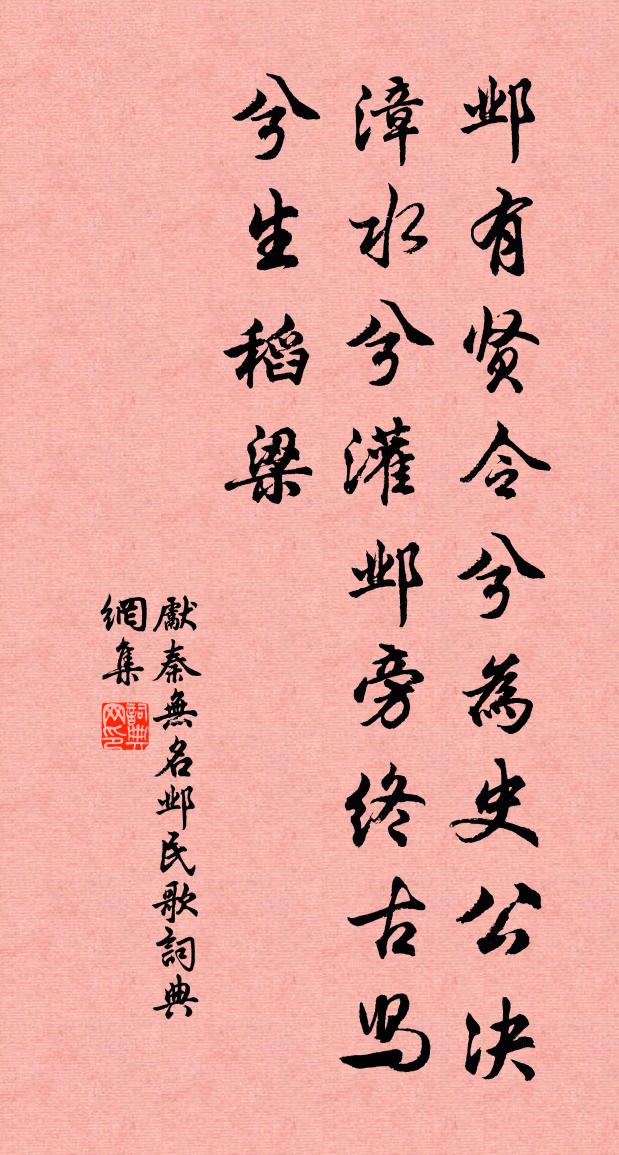 邺有贤令兮為史公决
漳水兮灌邺旁终古舄
兮生稻梁
獻秦無名邺民歌詞典
網集
詞典
网印